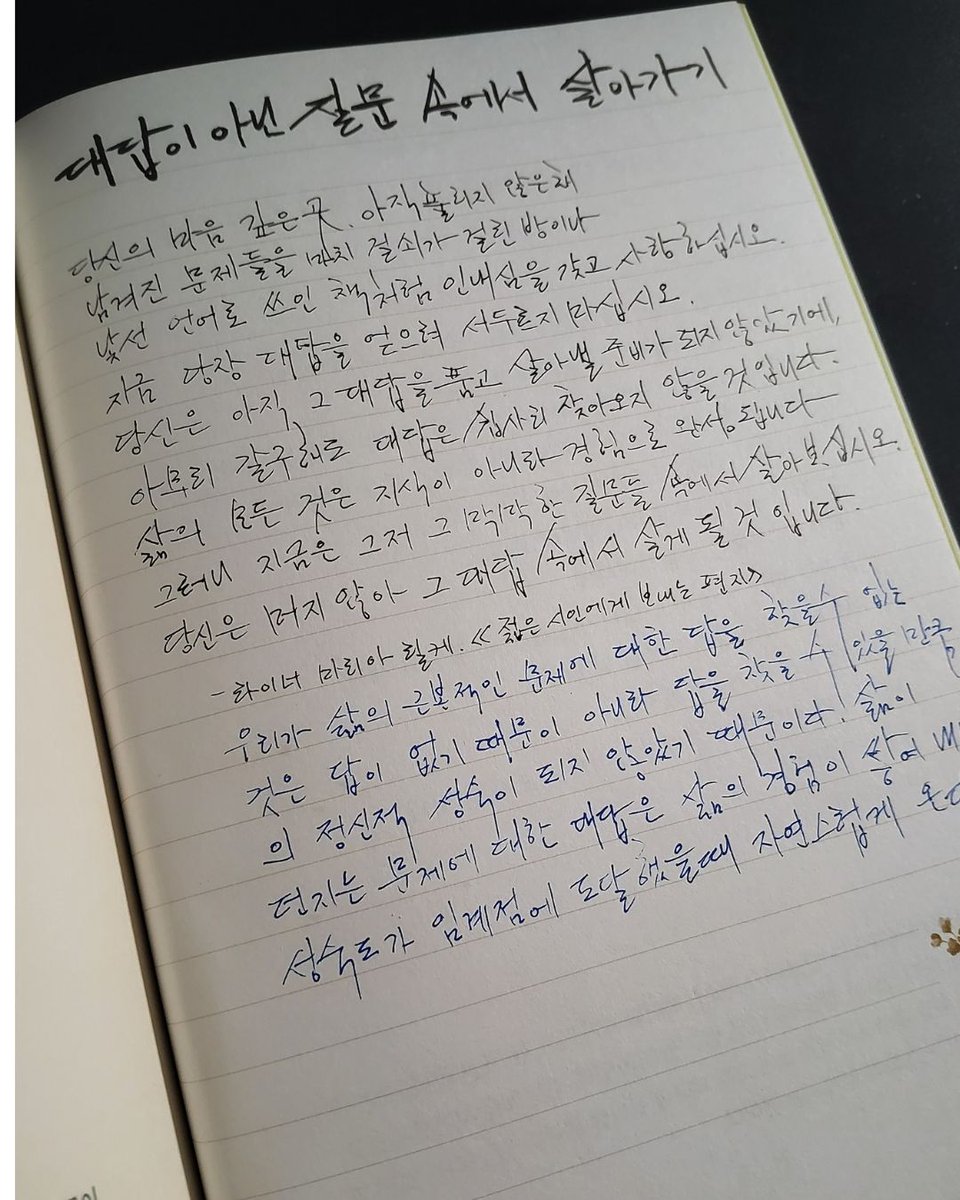 대답이 아닌 질문 속에서 살아가기
당신의 마음 깊은 곳. 아직 풀리지 않은채
남겨진 문제들을 마치 걸쇠가 걸린 방이나
낯선 언어로 쓰인 책처럼 인내심을 갖고 사랑하십시오.
지금 당장 대답을 얻으려 서두르지 마십시오.
당신은 아직 그 대답을 품고 살아낼 준비가 되지 않았기에,
아무리 갈구해도 대답은 쉽사리 찾아오지 않을 것입니다.
삶의 모든 것은 지식이 아니라 경험으로 완성됩니다
그러니 지금은 그저 그 막막한 질문들 속에서 살아보십시오.
당신은 머지 않아 그 대답 속에서 살게 될 것 입니다.
- 라이너 마리아 릴케. 《젊은 시인에게 보내는 편지》
우리가 삶의 근본적인 문제에 대한 답을 찾을수 없는
것은 답이 없기 때문이 아니라 답을 찾을 수 있을 만큼
의 정신적 성숙이 되지 않았기 때문이다. 삶이
던지는 문제에 대한 대답은 삶의 경험이 쌓여
성숙도가 임계점에 도달했을때 자연스럽게 온다